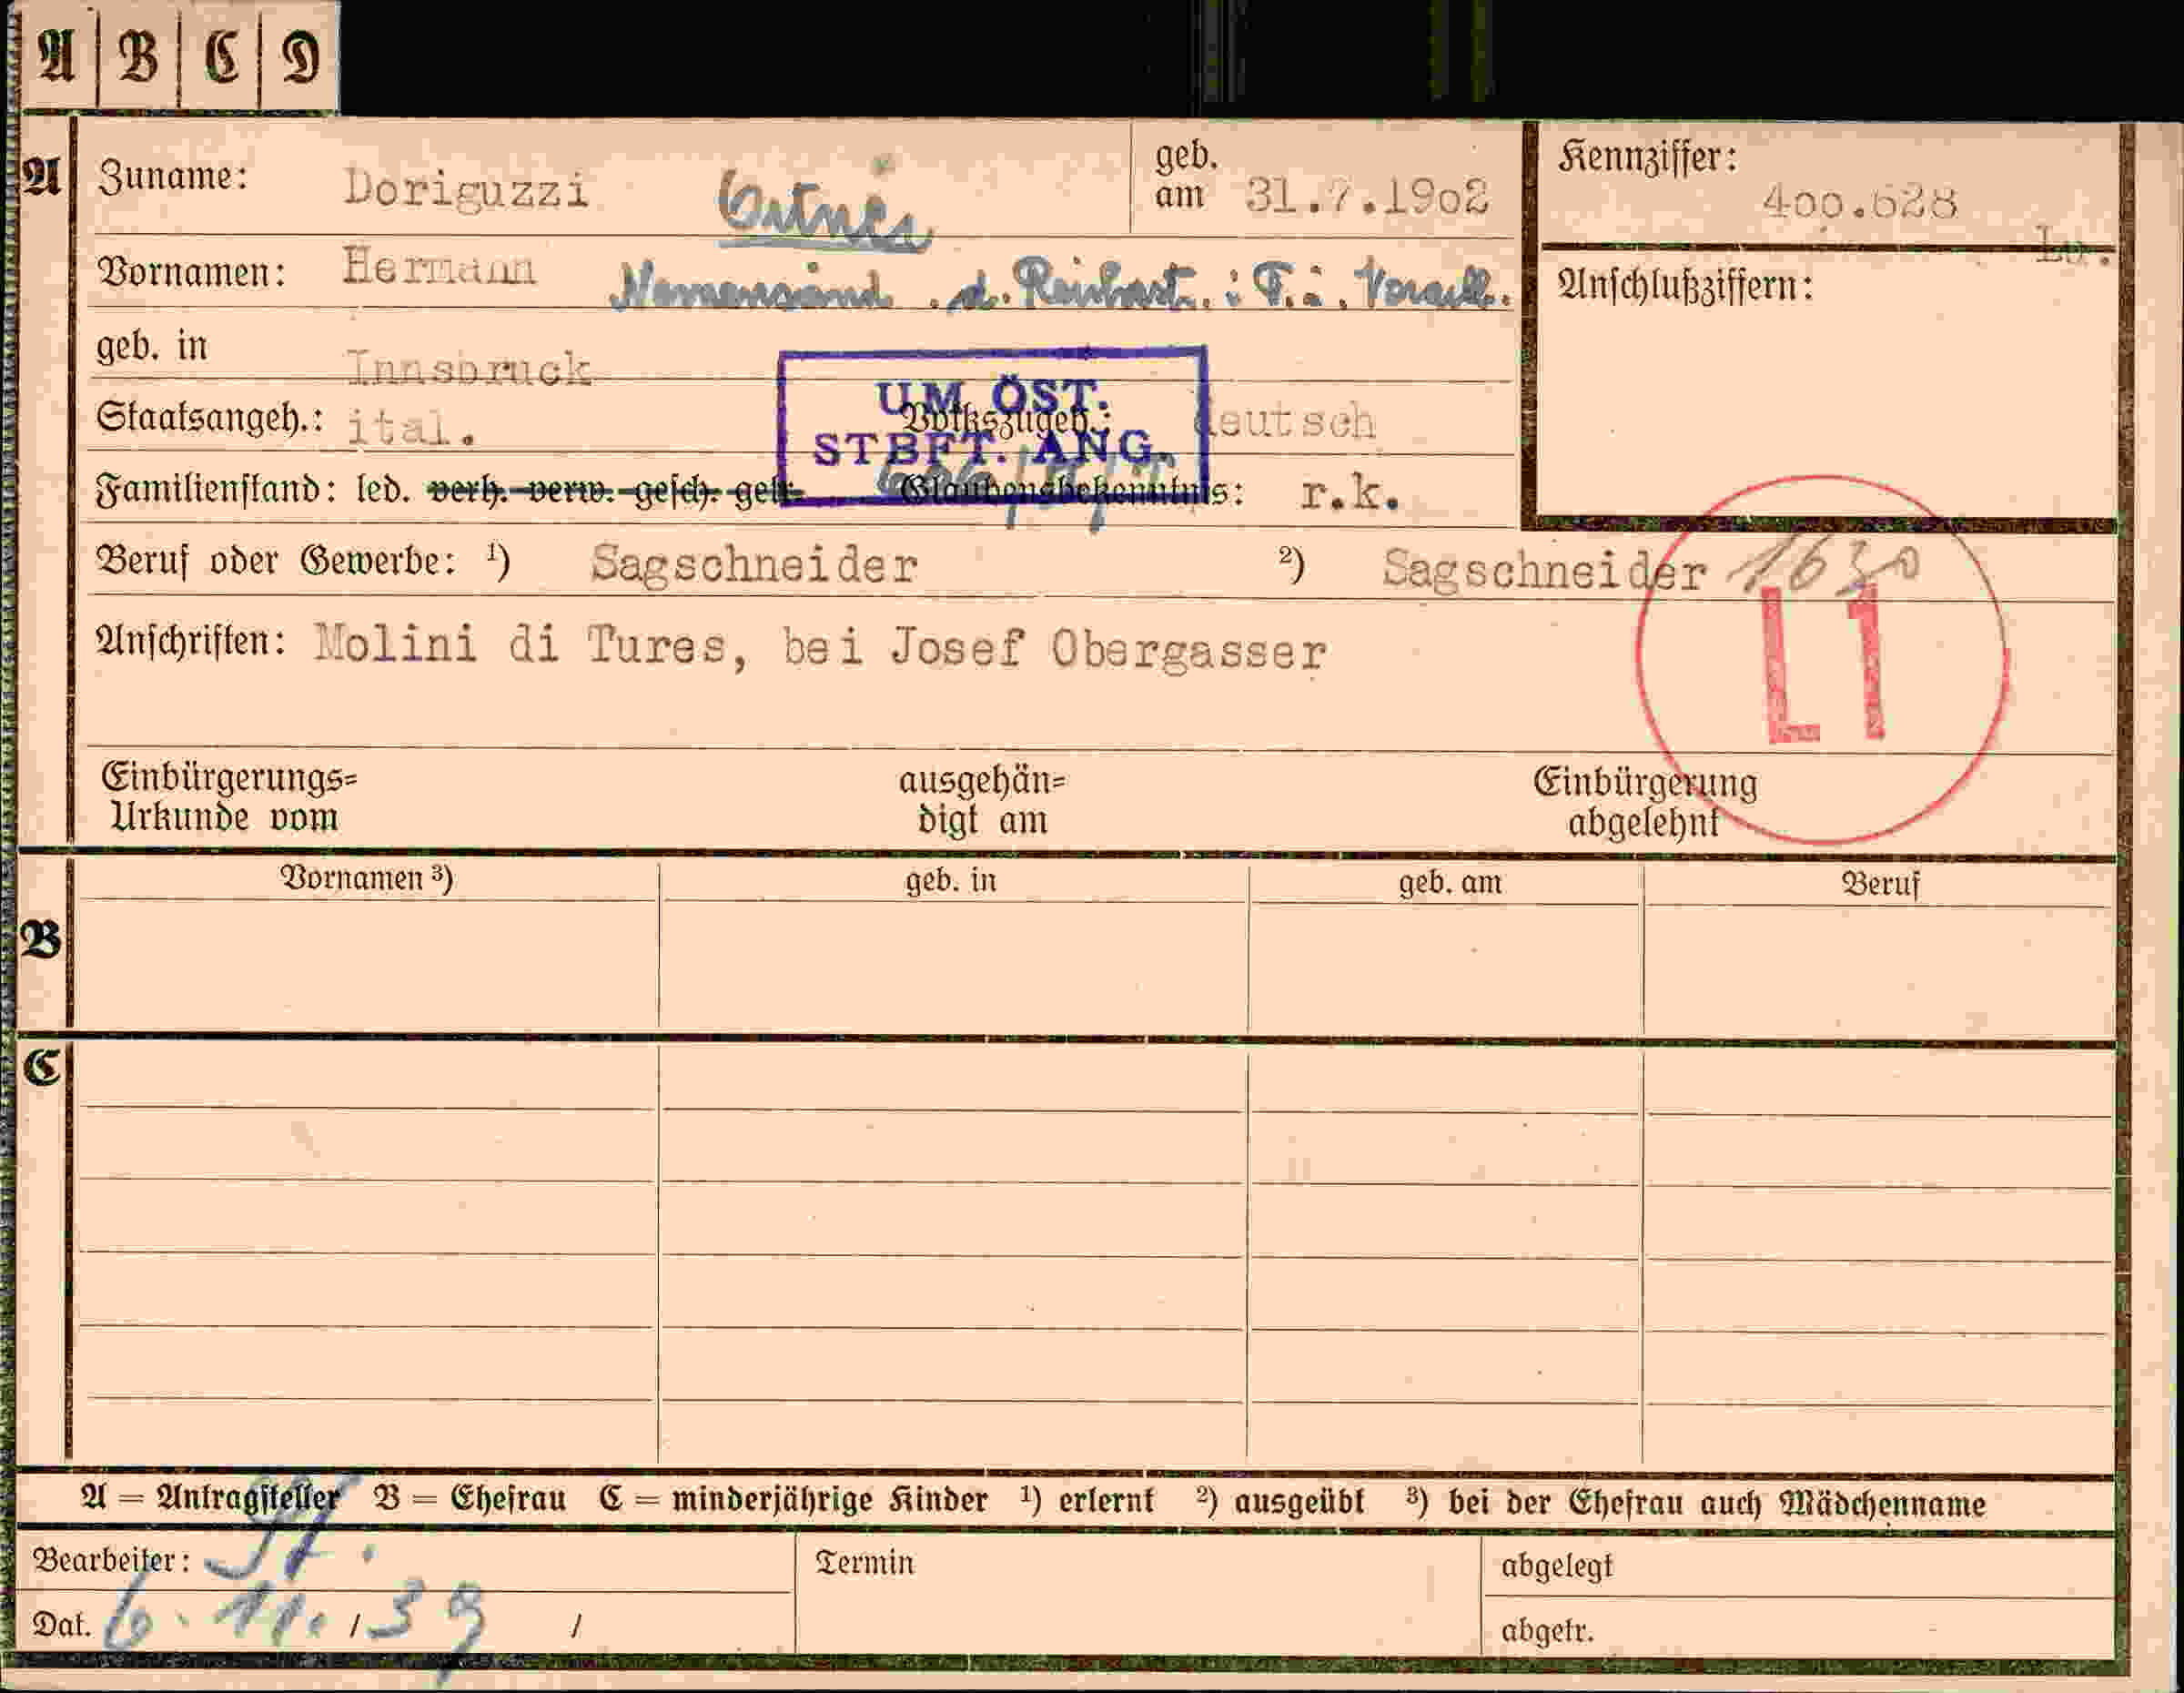 A B C D
A Zuname: Doriguzzi geb. am 31.7.1902 Kennziffer: 400.628
Lo.
Vornamen: Hermann Anschlußziffern:
geb. in Innsbruck
UM ÖST.
STBFT. ANG.
Staatsangeh.: ital. Volkszugeh.: deutsch
Familienstand: led. verh. verw. gesch. getr. Glaubensbekenntnis: r.k.
Beruf oder Gewerbe: 1) Sagschneider 2) Sagschneider 1630
L1
Anschriften: Molini di Tures, bei Josef Obergasser
Einbürgerungs= ausgehän= Einbürgerung
Urkunde vom digt am abgelehnt
Vornamen 3) geb. in geb. am Beruf
B
C
A = Antragsteller B = Ehefrau C = minderjährige Kinder 1) erlernt 2) ausgeübt 3) bei der Ehefrau auch Mädchenname
Bearbeiter: Termin abgelegt
Dat. 6.11./39 / abgetr.